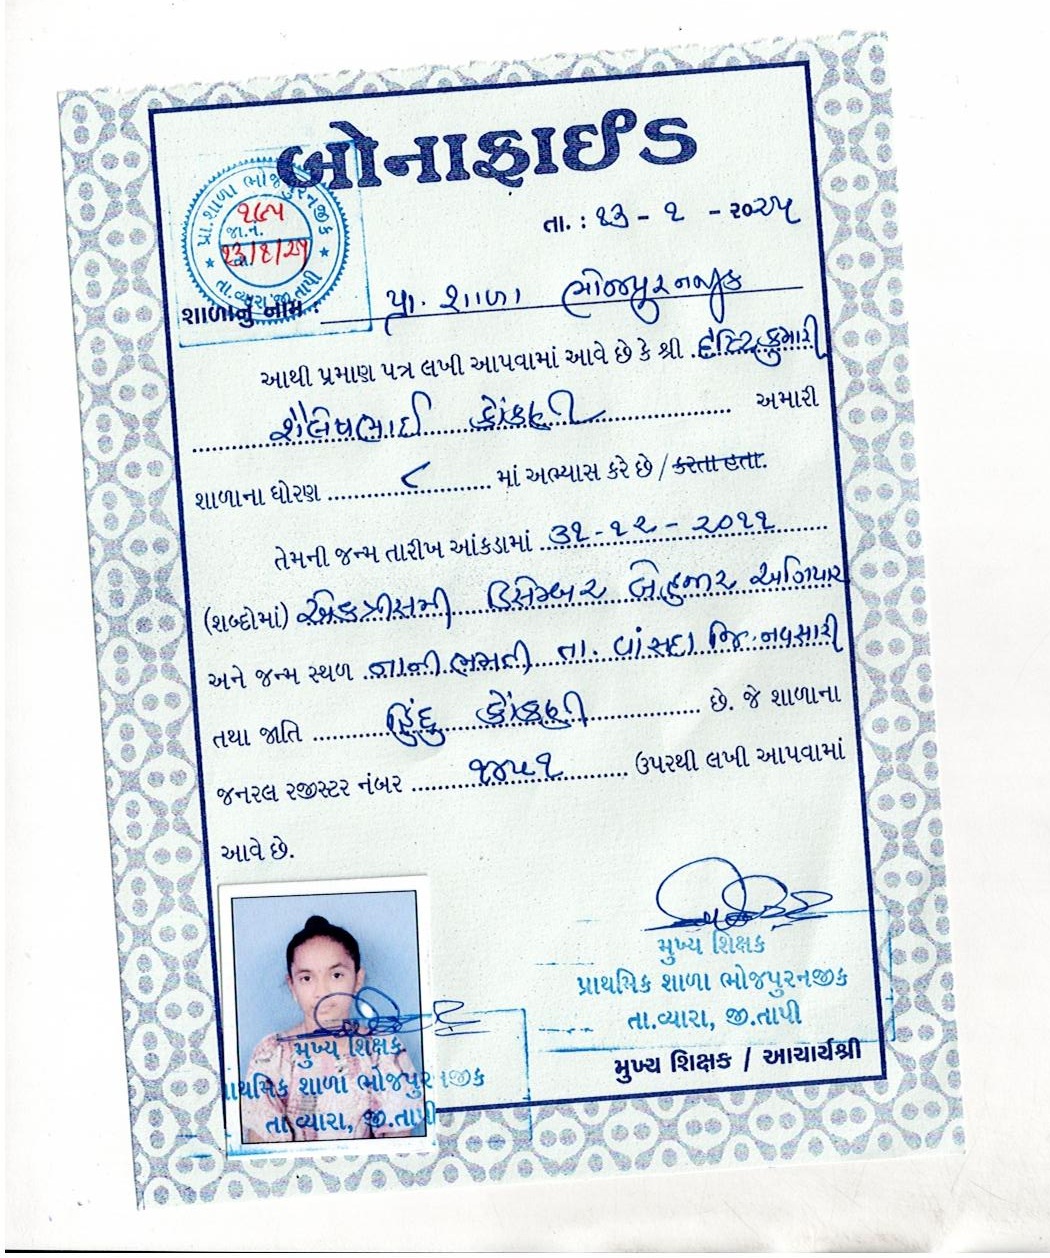 બોનાફાઈડ
પ્રા. શાળા ભોજપુરનજીક
૧૬૫
જા.નં.
૧૩/૧/૨૫
તા.વ્યારા.જી.તાપી
તા. : ૧૩ - ૧ - ૨૦૨૫
શાળાનું નામ : પ્રા. શાળા ભોજપુરનજીક
આથી પ્રમાણ પત્ર લખી આપવામાં આવે છે કે શ્રી . કુમારી
શૈલેષભાઈ કોંકણી અમારી
શાળાના ધોરણ ૮ માં અભ્યાસ કરે છે / કરતા હતા.
તેમની જન્મ તારીખ આંકડામાં ૩૧-૧૨-૨૦૧૧
(શબ્દોમાં) એકત્રીસમી ડિસેમ્બર બેહજાર અગિયાર
અને જન્મ સ્થળ નાની ભમતી તા. વાંસદા જિ. નવસારી
તથા જાતિ હિંદુ કોંકણી છે. જે શાળાના
જનરલ રજીસ્ટર નંબર ૧૪૫૧ ઉપરથી લખી આપવામાં
આવે છે.
મુખ્ય શિક્ષક
પ્રાથમિક શાળા ભોજપુરનજીક
તા.વ્યારા, જી.તાપી
મુખ્ય શિક્ષક / આચાર્યશ્રી
મુખ્ય શિક્ષક
પ્રાથમિક શાળા ભોજપુરનજીક
તા.વ્યારા, જી.તાપી